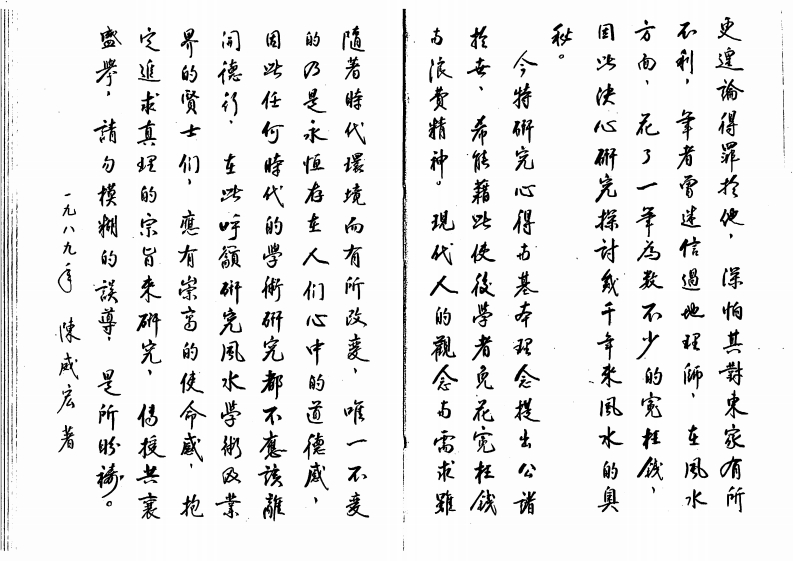 更遑論得罪於他，深怕其對東家有所
不利，筆者曾迷信過地理師，在風水
方面，花了一筆為數不少的寃枉錢，
因此決心研究探討幾千年來風水的奧
秘。
今特研究心得与基本理念提出公諸
於世、希能藉此使後學者免花寃枉錢
与浪費精神。現代人的觀念与需求雖
隨著時代環境而有所改變，唯一不變
的乃是永恒存在人们心中的道德感，
因此任何時代的學術研究都不應該離
開德行，在此呼籲研究風水學術及業
界的賢士们，應有崇高的使命感，抱
定追求真理的宗旨來研究，傳授共襄
盛舉，請勿模糊的誤導，是所盼禱。
一九八九年 陳威宏 著